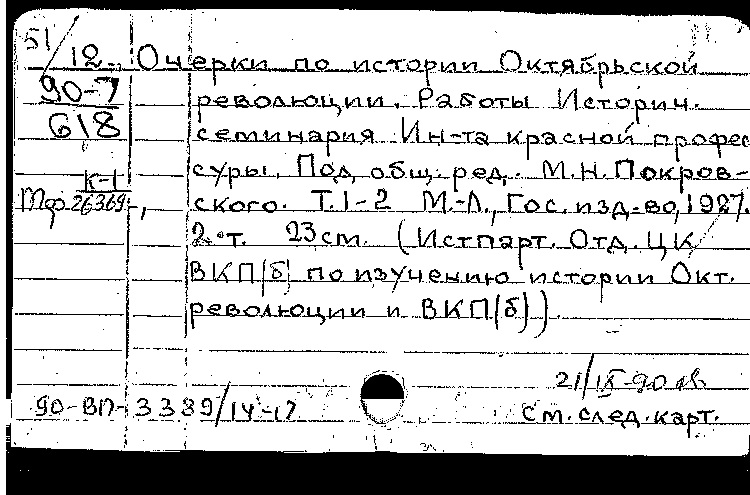 51/12 Очерки по истории Октябрьской
90-7 революции. Работы Историч.
618 семинария Ин-та красной профес
суры. Под общ. ред. М.Н. Покров-
К-1
Мф. 26369-, ского. Т.1-2 М.-Л., Гос. изд-во, 1927.
2 т. 23 см. (Истпарт. Отд. ЦК
ВКП(б) по изучению истории Окт.
революции и ВКП(б))
21/IX-90
90-ВП-3389/14-17 См. след. карт.